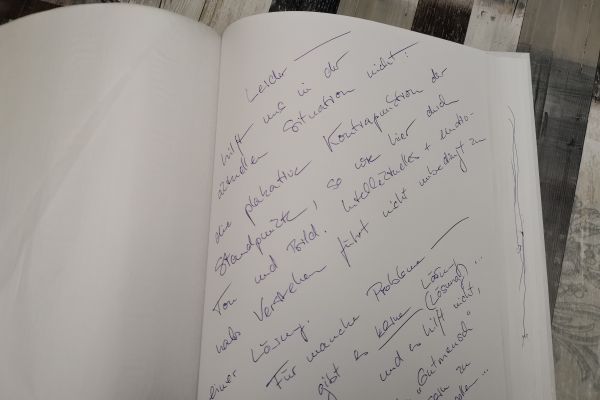 Leider —
hilft uns in der
aktuellen Situation nicht:
die plakative Kontrapunktion der
Standpunkte, so wie hier durch
Ton und Bild. Intellektuelles + emotio-
nales Verstehen führt nicht unbedingt zu
einer Lösung.
Für manche Probleme —
gibt es keine Lösung ...
(Lösung)
und es hilft nicht,
"Gutmensch"
sein zu